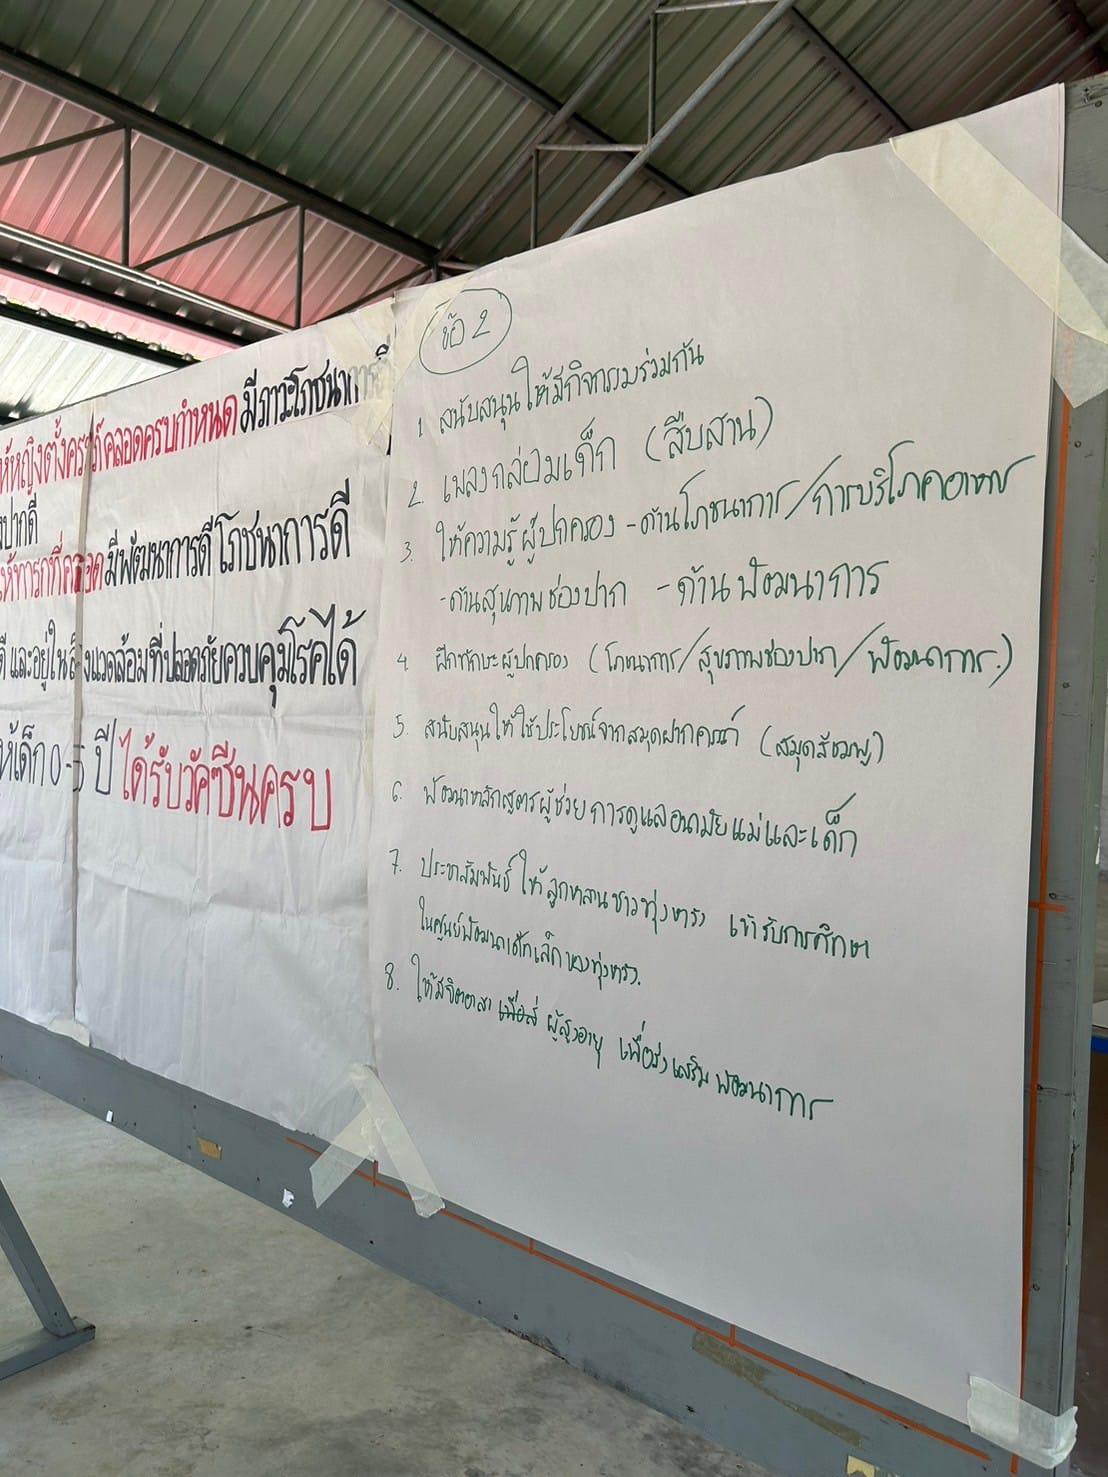 ห้หญิงตั้งครรภ์คลอดครบกำหนด มีภาวะโภชนาการ
งปากดี
ห้ทารกที่คลอด มีพัฒนาการดี โภชนาการดี
ดี และอยู่ในสิ่งแวดล้อมที่ปลอดภัยควบคุมโรคได้
ห้เด็ก 0-5 ปี ได้รับวัคซีนครบ
ข้อ 2
1. สนับสนุนให้มีกิจกรรมร่วมกัน
2. เพลงกล่อมเด็ก (สืบสาน)
3. ให้ความรู้ผู้ปกครอง - ด้านโภชนาการ/การบริโภคอาหาร
- ด้านสุขภาพช่องปาก - ด้านพัฒนาการ
4. ฝึกทักษะผู้ปกครอง (โภชนาการ/สุขภาพช่องปาก/พัฒนาการ.)
5. สนับสนุนให้ใช้ประโยชน์จากสมุดฝากครรภ์ (สมุดสีชมพู)
6. พัฒนาหลักสูตรผู้ช่วยการดูแลอนามัยแม่และเด็ก
7. ประชาสัมพันธ์ให้ลูกหลานชาวทุ่งหวัง เข้ารับการศึกษา
ในศูนย์พัฒนาเด็กเล็กของทุ่งหวัง.
8. ให้มีจิตอาสา ผู้สูงอายุ เพื่อส่งเสริมพัฒนาการ